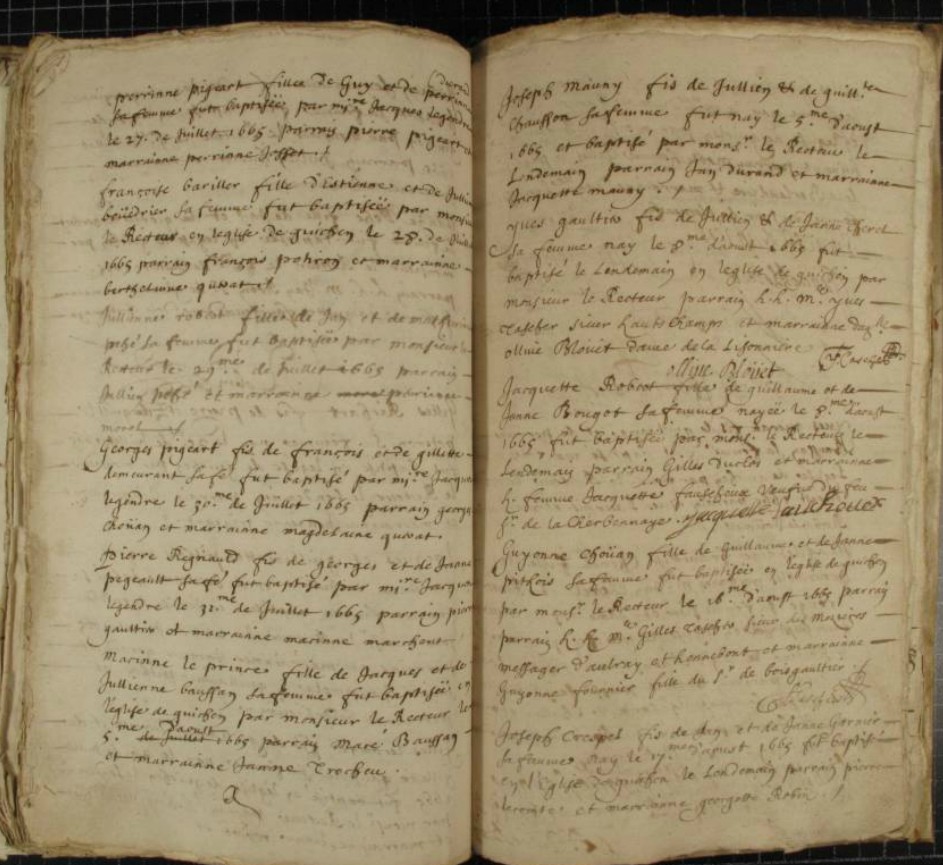 perrinne pigeart fille de Guy et de perrinne
sa femme fut baptisée par mi.re Jacques legendre
le 27. de Juillet 1665 parrain pierre pigeart et
marrainne perrinne Josset
françoise bariller fille d'Estienne et de Julli
bouedrier sa femme fut baptisée par monsie
le Recteur en leglise de guichen le 28. de Juillet
1665 parrain françois et marrainne
berthelinne
Jullienne robert fille de Jan et de
sa femme fut baptisée par monsieur le
Recteur le 29.me de Juillet 1665 parrain
Jullien et marrainne perrinne
morel
Georges pigeart fis de françois et de gillette
demeurant sa fe fut baptisé par mi.re Jacques
legendre le 30.me de Juillet 1665 parrain georges
Choüan et marrainne magdelaine
Pierre Regnauld fis de georges et de Janne
pegeault sa fe fut baptisé par mi.re Jacques
legendre le 31.me de Juillet 1665 parrain pierre
gaultier et marrainne macinne marchant
Macinne le prince fille de Jacques et de
Jullienne baussan sa femme fut baptisée en
leglise de guichen par monsieur le Recteur le
5.me de Juillet d'aoust 1665 parrain Macé Baussan
et marrainne Janne Trocheu
Joseph Mauny fis de Jullien & de guill.e
Chausson sa femme fut nay le 5.me d'aoust
1665 et baptisé par mons.r le Recteur le
Lendemain parrain Jan durand et marrainne
Jacquette mauny
gilles gaultier fis de Jullien & de Janne
sa femme nay le 8.me d'aoust 1665 fut
baptisé le Lendemain en leglise de guichen par
monsieur le Recteur parrain h. h. M.e yues
Tascher sieur hautchamp et marrainne
ollive Blouet dame de la Lisonniere
ollive Blouet
Jacquette Robert fille de guillaume et de
Janne Bougot sa femme nayée le 8.me d'aoust
1665 fut baptisée par mons.r le Recteur le
Lendemain parrain Gilles Duclos et marrainne
h. femme Jacquette feu
S.r de la Cherbonnaye Jacquette
Guyonne Choüan fille de Guillaume et de Janne
prithois sa femme fut baptisée en leglise de guichen
par mons.r le Recteur le 16.me d'aoust 1665 parrain
parrain h. h. M.e Gilles Tascher sieur des
messager d'aulray et hennebont et marrainne
Guyonne fournier fille du S.r de boisgaultier
Joseph Crespel fis de Jan et de Janne Garnier
sa femme nay le 17.me d'aoust 1665 fut baptisé
en l'Eglise de guichen le Lendemain parrain pierre
lecomte et marrainne georgette Robin